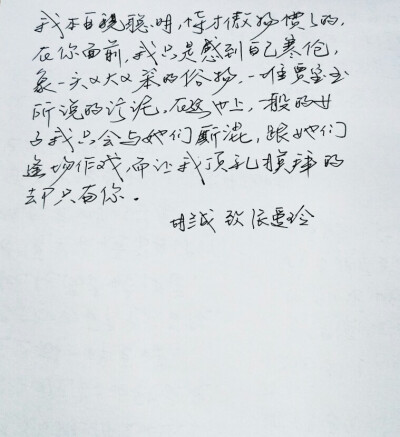 我本自视聪明,恃才傲物惯了的,
在你面前,我只是感到自己寒伧,
象一头又大又笨的俗物,一堆贾宝玉
所说的污泥。在这世上,一般的女
子我只会与她们厮混,跟她们
逢场作戏,而让我顶礼膜拜的
却只有你。
胡兰成 致 张爱玲